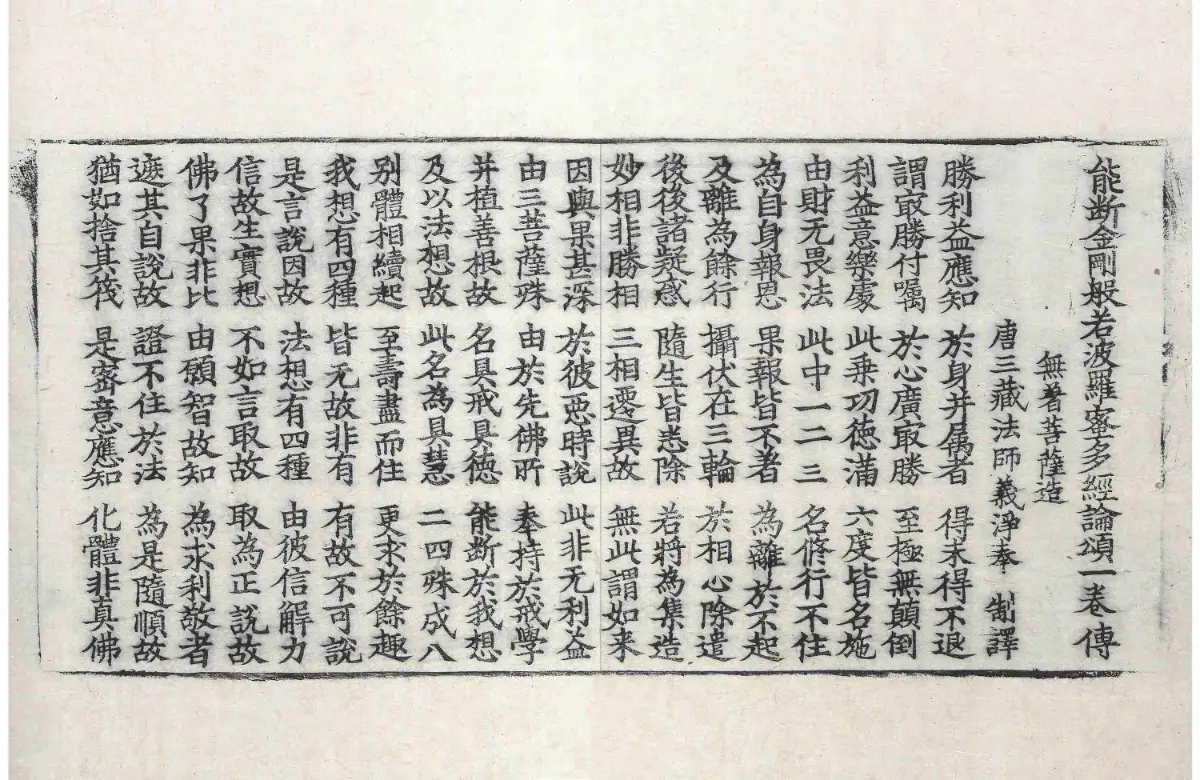 能断金剛般若波羅蜜多經論頌一卷 傳
無著菩薩造
唐三藏法師義淨奉 制譯
勝利益應知 於身并属者 得未得不退
謂㝡勝付囑 於心廣㝡勝 至極無顛倒
利益意樂處 此乗功徳滿 六度皆名施
由財无畏法 此中一二三 名脩行不住
為自身報恩 果報皆不著 為離於不起
及離為餘行 攝伏在三輪 於相心除遣
後後諸疑惑 隨生皆悉除 若將為集造
妙相非勝相 三相遷異故 無此謂如来
因與果甚深 於彼惡時說 此非无利益
由三菩薩殊 由於先佛所 奉持於戒學
并植善根故 名具戒具徳 能断於我想
及以法想故 此名為具慧 二四殊成八
別體相續起 至壽盡而住 更求於餘趣
我想有四種 皆无故非有 有故不可說
是言說因故 法想有四種 由彼信解力
信故生實想 不如言取故 取為正說故
佛了果非比 由願智故知 為求利敬者
遮其自說故 證不住於法 為是隨順故
猶如捨其筏 是密意應知 化體非真佛